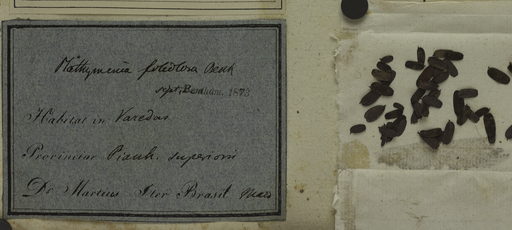 Plathymenia foliolosa Benth
scpt. Bentham. 1873
Habitat in Varedas
Provinciae Piauh. superioris
Dr Martius Iter Brasil